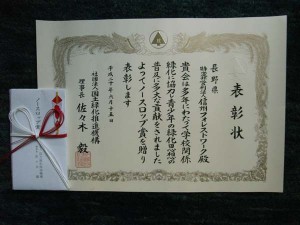 表彰状
長野県
特定非営利活動法人信州フォレストワーク殿
貴会は多年にわたって学校関係
緑化に協力し青少年の緑化思想の
普及に多大な貢献をされました
よってノースロップ賞を贈り
表彰します
平成二十年六月十五日
社団法人国土緑化推進機構
理事長 佐々木 毅